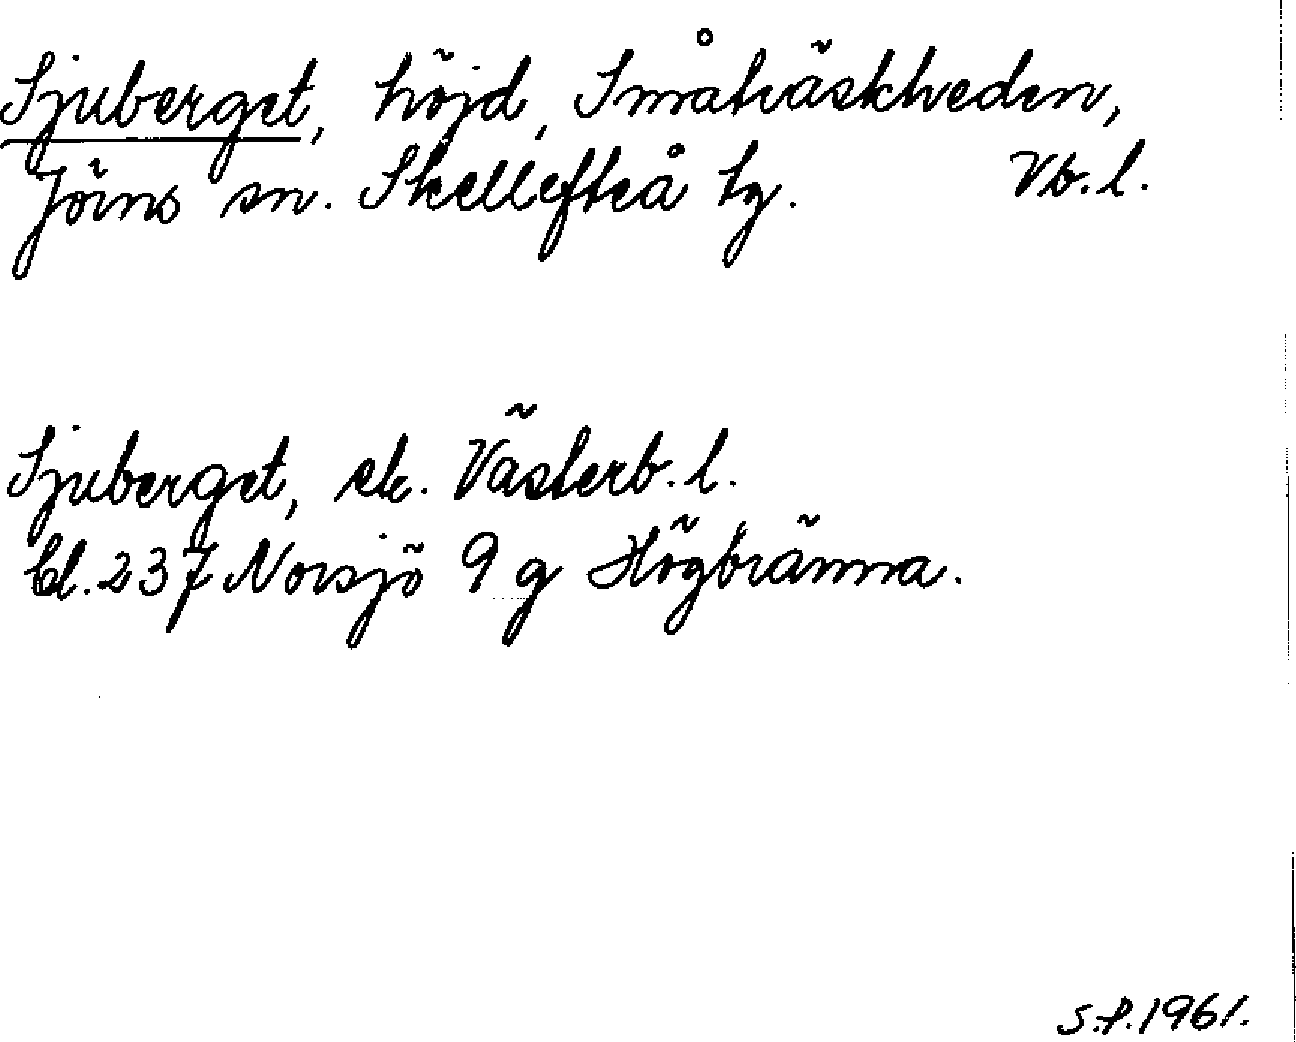 Sjuberget, höjd, Småträskheden,
Jörns sn. Skellefteå tg. Vb.l.
Sjuberget, ek. Västerb.l.
bl. 237 Norsjö 9 g Högbränna.
S.P. 1961.